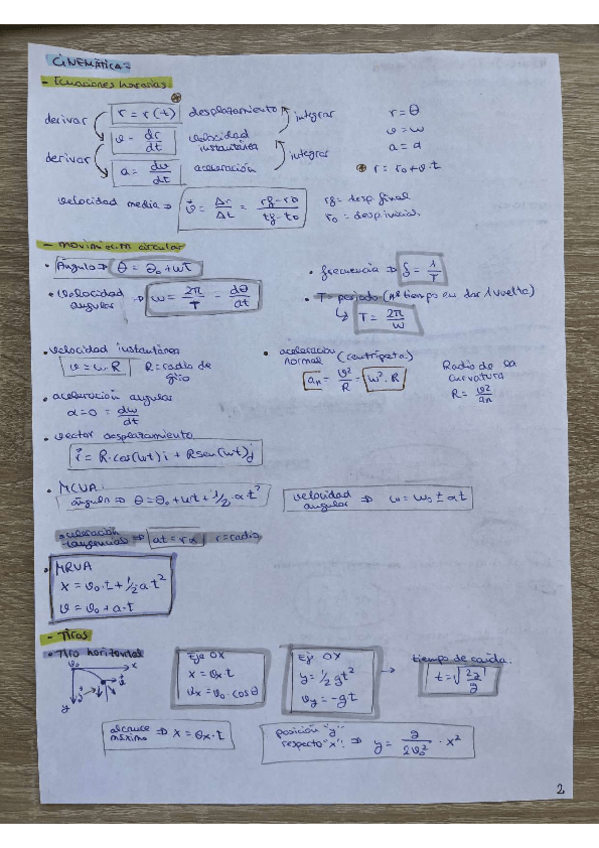 CINEMÁTICA:
- Ecuaciones horarias
derivar r = r(t) desplazamiento integrar r = θ
derivar v = dr/dt velocidad instantánea integrar v = w
a = dv/dt aceleración a = α
r = r₀ + v·t
velocidad media ⇒ v⃗ = Δr/Δt = rf - r0/tf - t0 rf = desp. final
r₀ = desp. inicial.
- movimiento circular
• Ángulo ⇒ θ = θ₀ + wt • frecuencia ⇒ f = 1/T
• velocidad angular ⇒ w = 2π/T = dθ/dt • T = periodo (nº tiempo en dar 1 vuelta)
↳ T = 2π/w
• velocidad instantánea • aceleración normal (centrípeta) Radio de la curvatura
v = w·R R = radio de giro aₙ = v²/R = w²·R R = v²/an
• aceleración angular
α = 0 = dw/dt
• vector desplazamiento
r⃗ = R·cos(wt)i + Rsen(wt)j
• MCUA:
ángulo ⇒ θ = θ₀ + wt + 1/2 αt² velocidad angular ⇒ w = w₀ ± αt
• aceleración tangencial ⇒ at = r·α r = radio
• MRUA
x = v₀·t + 1/2 at²
v = v₀ + a·t
- Tiros
- Tiro horizontal
v₀ x
y
Eje OX Eje OX tiempo de caída.
x = vx·t y = 1/2 gt² → t = √2y/g
vx = v₀·cosθ vy = -gt
alcance máximo ⇒ x = vx·t posición "y" respecto "x": ⇒ y = g/2v₀² · x²
2